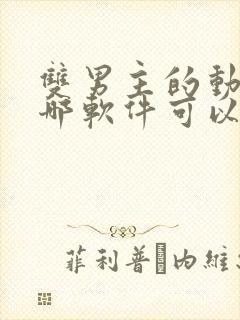 雙男主的動
哪軟件可以
菲利普·內維